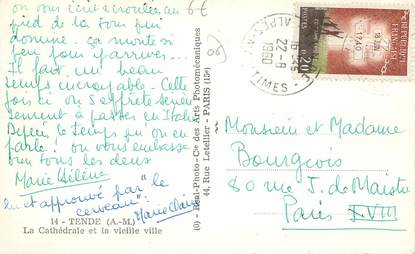 on vous écrit écroulées au 6€
pied de la tour qui
domine. ça monte si
peu pour arriver...
Il fait un beau
temps incroyable. Cette
fois ci on s'apprête sérieu-
sement à passer en Italie
Depuis le temps qu'on en
parle! on vous embrasse
bien tous les deux
Marie Hélène
Lu et approuvé par "le
cerveau": Marie Claire
14 - TENDE (A.-M.)
La Cathédrale et la vieille ville
(O) - Réal-Photo-Cie des Arts Photomécaniques
44, Rue Letellier - PARIS (15e)
06
22-8
1960
ALPES-MARITIMES
REPUBLIQUE FRANÇAISE
18 JUIN
1940
0,20
POSTES
Monsieur et Madame
Bourgeois
80 rue J. de Maistre
Paris XVIII